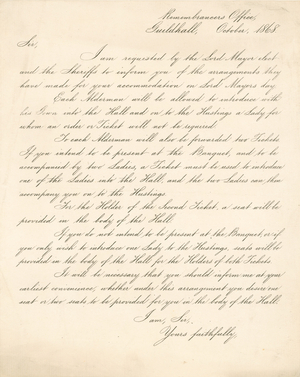 Remembrancers Office,
Guildhall, October, 1868.
Sir,
I am requested by the Lord Mayor elect
and the Sheriffs to inform you of the arrangements they
have made for your accommodation on Lord Mayors day.
Each Alderman will be allowed to introduce with
his Gown into the Hall and on to the Hustings a Lady for
whom an order or Ticket will not be required.
To each Alderman will also be forwarded two Tickets.
If you intend to be present at the Banquet, and to be
accompanied by two Ladies, a Ticket must be used to introduce
one of the Ladies into the Hall, and the two Ladies can then
accompany you on to the Hustings.
For the Holder of the Second Ticket, a seat will be
provided in the body of the Hall.
If you do not intend to be present at the Banquet, or if
you only wish to introduce one Lady to the Hustings, seats will be
provided in the body of the Hall for the Holders of both Tickets.
It will be necessary that you should inform me at your
earliest convenience, whether under this arrangement you desire one
seat or two seats to be provided for you in the body of the Hall.
I am, Sir,
Yours faithfully,